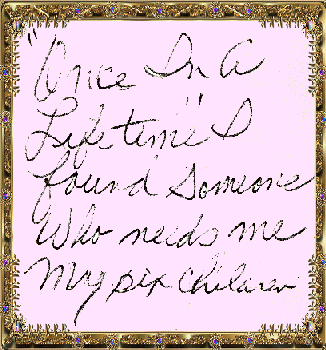 "Once In A
Lifetime" I
found someone
Who needs me
My six children